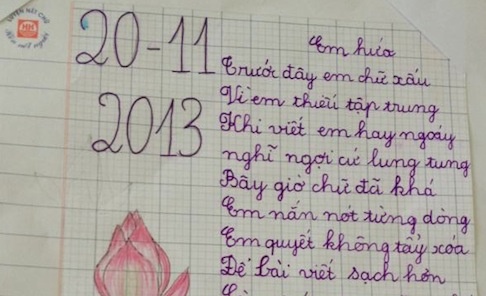 20-11
2013
Em hứa
Trước đây em chữ xấu
Vì em thiếu tập trung
Khi viết em hay ngoáy
nghĩ ngợi cứ lung tung
Bây giờ chữ đã khá
Em nắn nót từng dòng
Em quyết không tẩy xóa
Để bài viết sạch hơn